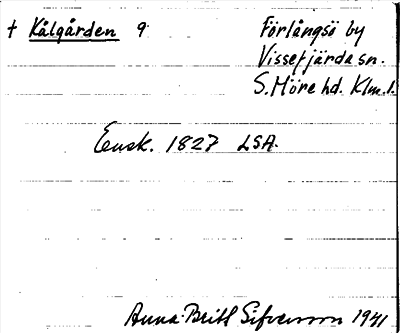 † Kålgården 9 Förlångsö by
Vissefjärda sn.
S. Möre hd. Klm. l.
Ensk. 1827 LSA.
Anna-Britt Sifversson 1941